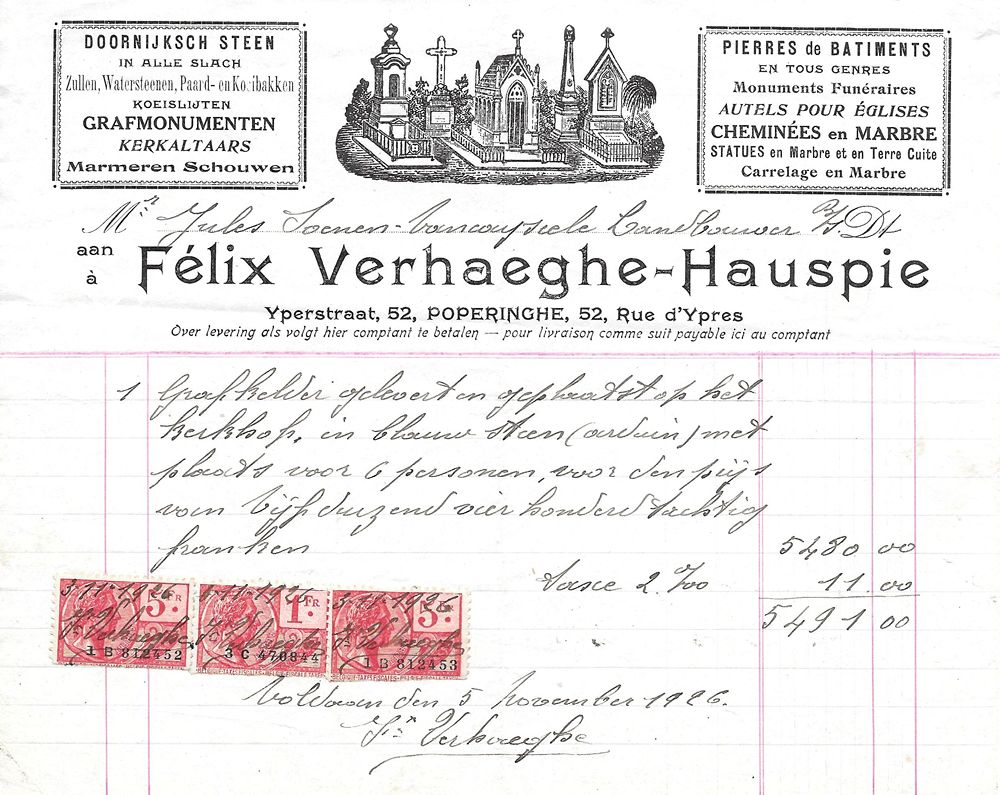 DOORNIJKSCH STEEN
IN ALLE SLACH
Zullen, Watersteenen, Paard- en Koeibakken
KOEISLIJTEN
GRAFMONUMENTEN
KERKALTAARS
Marmeren Schouwen
PIERRES de BATIMENTS
EN TOUS GENRES
Monuments Funéraires
AUTELS POUR ÉGLISES
CHEMINÉES en MARBRE
STATUES en Marbre et en Terre Cuite
Carrelage en Marbre
Mr Jules Soenen-Vancayseele Landbouwer Dt
aan
à
Félix Verhaeghe-Hauspie
Yperstraat, 52, POPERINGHE, 52, Rue d'Ypres
Over levering als volgt hier comptant te betalen — pour livraison comme suit payable ici au comptant
1 Grafkelder gelevert en geplaatst op het
kerkhof, in blauw steen (arduin) met
plaats voor 6 personen, voor den prijs
van vijfduizend vier honderd tachtig
franken 5480 00
taxe 2 %00 11 00
5491 00
3-11-1926 5 FR
F Verhaeghe
1 B 812452
3-11-1926 1 FR
F Verhaeghe
3 C 470844
3-11-1926 5 FR
F Verhaeghe
1 B 812453
Voldaan den 5 november 1926.
Fx Verhaeghe